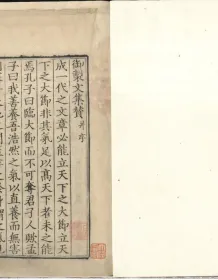 御製文集贊 并序
成一代之文章必能立天下之大節立天
下之大節非其氣足以高天下者未之能
焉孔子曰臨大節而不可奪君子人歟孟
子曰我善養吾浩然之氣以直養而無害